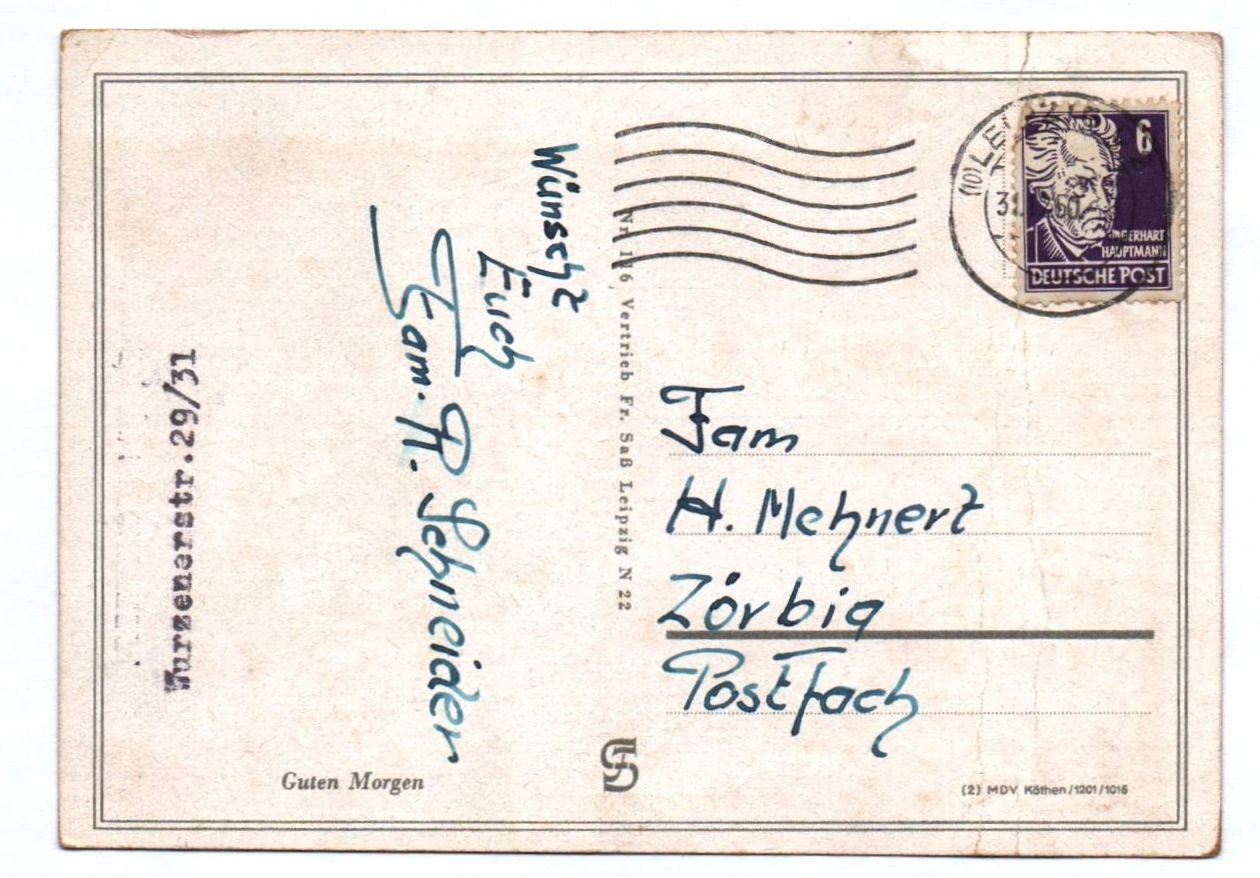 Wünscht
Euch
Fam. R. Schneider
Wurzenerstr.29/31
Guten Morgen
Nr. 116 Vertrieb Fr. Saß Leipzig N 22
(10) LEIPZIG
6
GERHART
HAUPTMANN
DEUTSCHE POST
Fam
H. Mehnert
Zörbig
Postfach
(2) MDV Köthen/1201/1016